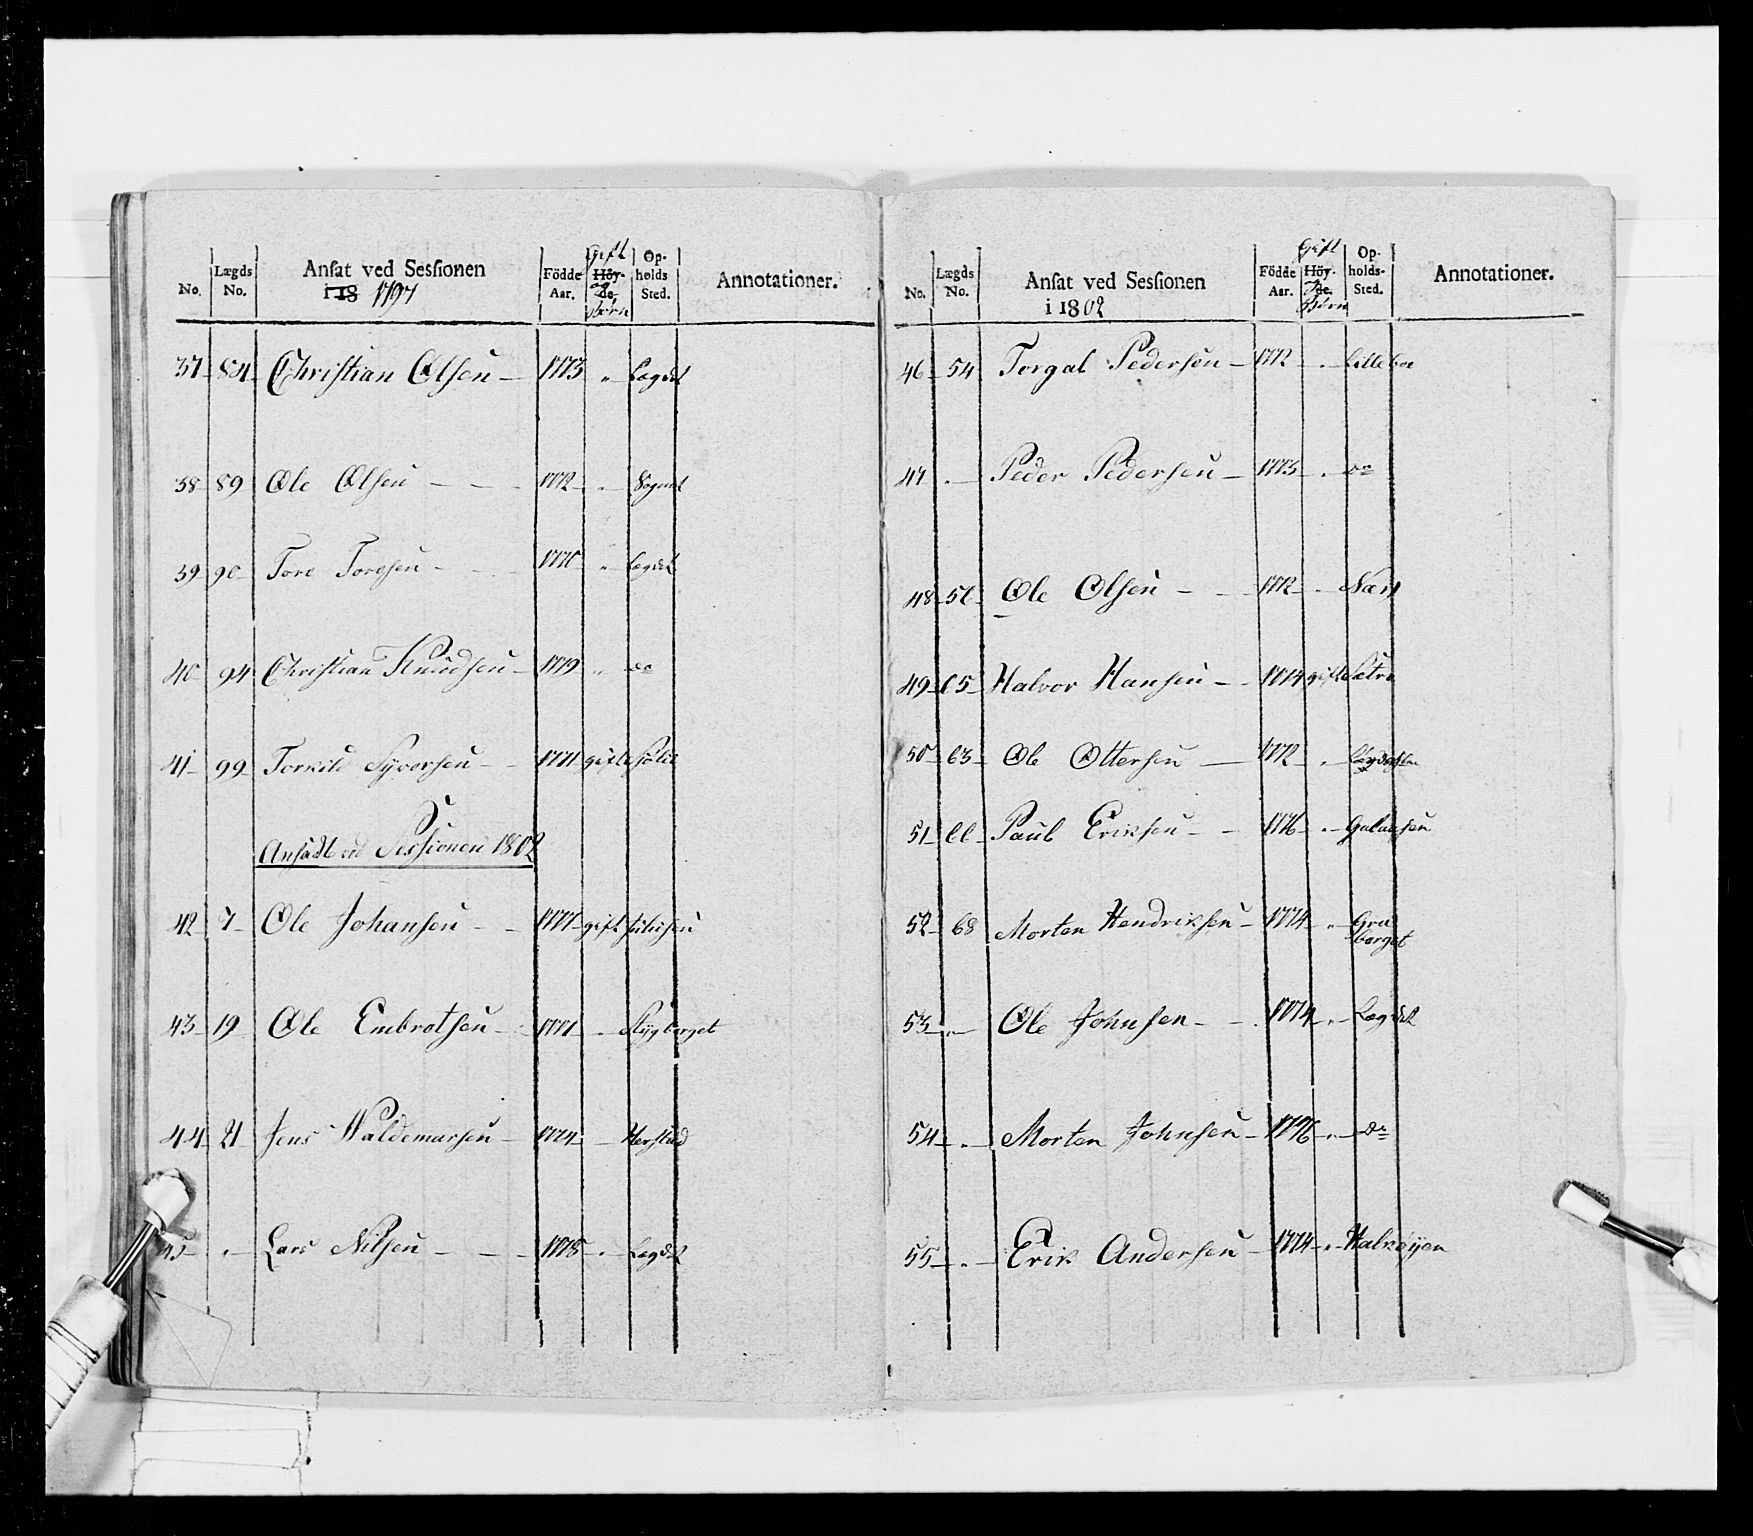 No. Lægds No. Ansat ved Sessionen i 18 1797 Födde Aar. Gift Höy- de. og Börn Op- holds Sted. Annotationer.
37 84 Christian Olsen 1773 " Lægdet
38 89 Ole Olsen 1772 " Sognet
39 90 Tore Toresen 1770 " Lægdet
40 94 Christian Knudsen 1779 " do
41 99 Torkild Syversen 1771 gift
Ansadt ved Sessionen 1802
42 7 Ole Johansen 1777 gift
43 19 Ole Embretsen 1771 " Stygberget
44 21 Jens Waldemarsen 1774 Herstad
45 " Lars Nilsen 1778 " Lægdet
No. Lægds No. Ansat ved Sessionen i 1802 Födde Aar. Gift Höy- de. Börn Op- holds- Sted. Annotationer.
46 54 Torgal Pedersen 1772 " Lilleboe
47 " Peder Pedersen 1773 " do
48 Ole Olsen 1772 "
49 65 Halvor Hansen 1774 gift Sætre
50 63 Ole Ottersen 1772 "
51 66 Paul Eriksen 1776 " Gulaasen
52 68 Morten Hendriksen 1774 " Gra
berget
53 " Ole Johnsen 1774 " Lægdet
54 " Morten Johnsen 1776 " do
55 " Erik Andersen 1774 " Halvøyen